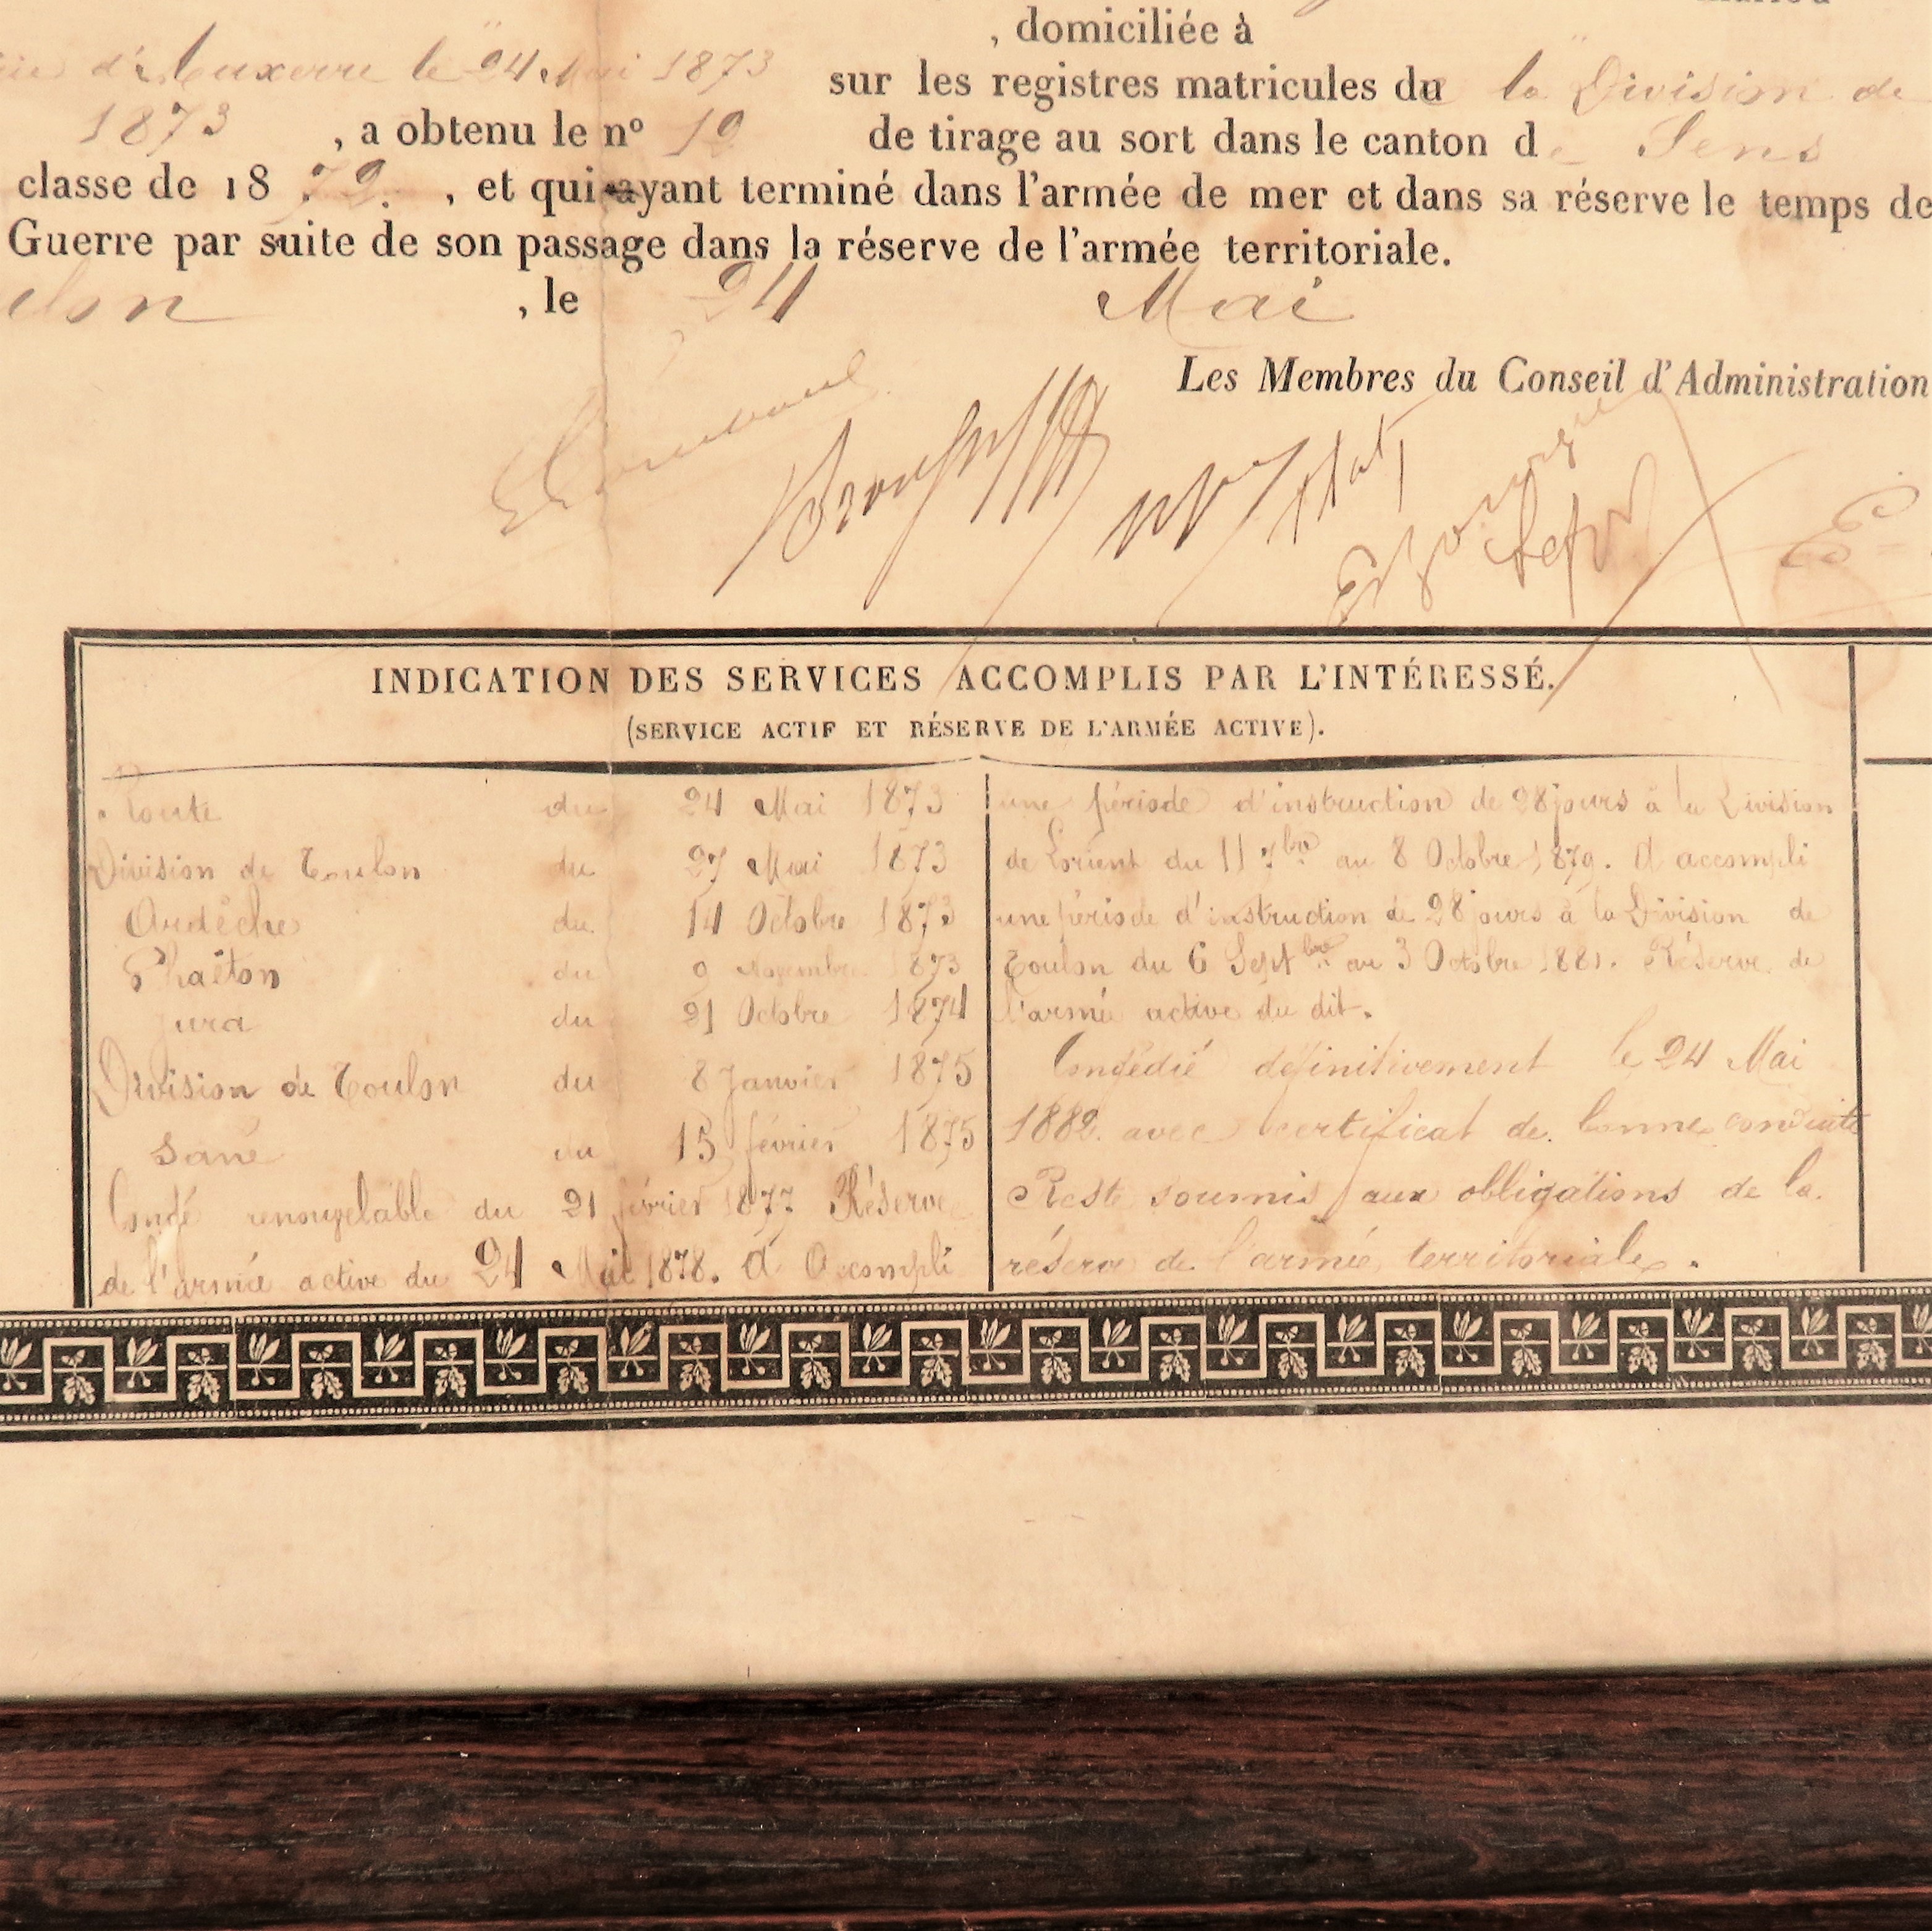 , domiciliée à
d'Auxerre le 24 Mai 1873 sur les registres matricules du la Division de
1873 , a obtenu le nº 19 de tirage au sort dans le canton de Sens
classe de 1872. , et qui ayant terminé dans l'armée de mer et dans sa réserve le temps de
Guerre par suite de son passage dans la réserve de l'armée territoriale.
, le 24 Mai
Les Membres du Conseil d'Administration
INDICATION DES SERVICES ACCOMPLIS PAR L'INTÉRESSÉ.
(SERVICE ACTIF ET RÉSERVE DE L'ARMÉE ACTIVE).
Route du 24 Mai 1873
Division de Toulon du 27 Mai 1873
Ardèche du 14 Octobre 1873
Phaëton du 9 Novembre 1873
Jura du 21 Octobre 1874
Division de Toulon du 8 Janvier 1875
Sané du 15 février 1875
Congé renouvelable du 21 février 1877 Réserve
de l'armée active du 24 Mai 1878. A Accompli
une période d'instruction de 28 jours à la Division
de Lorient du 11 7bre au 8 Octobre 1879. A accompli
une période d'instruction de 28 jours à la Division de
Toulon du 6 Septbre au 3 Octobre 1881. Réserve de
l'armée active du dit.
Congédié définitivement le 24 Mai
1882. avec certificat de bonne conduite
Reste soumis aux obligations de la
réserve de l'armée territoriale.